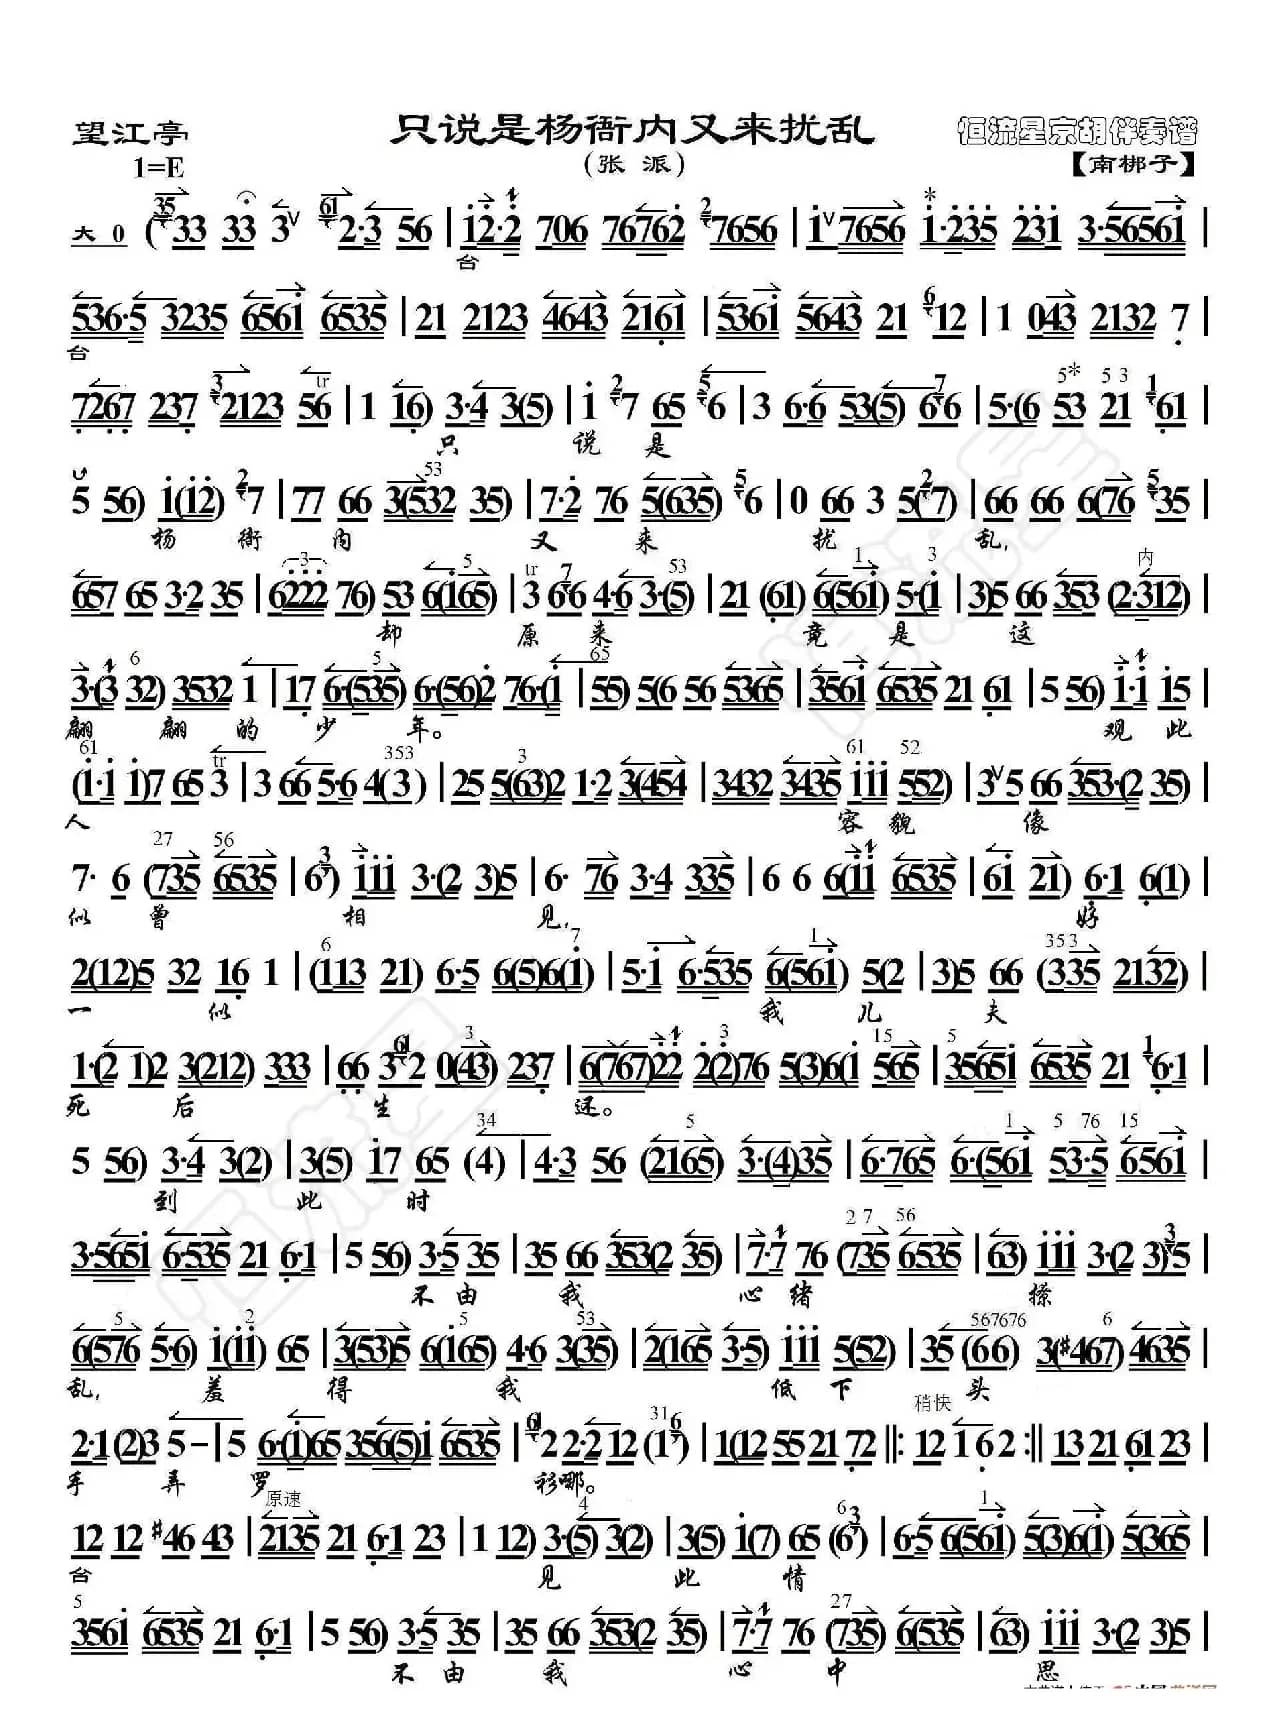 望江亭 只说是杨衙内又来扰乱 恒流星京胡伴奏谱
1=E (张 派) 【南梆子】
大 0 ( 33 33 3 2·3 56 | 12·2 706 76762 7656 | 1 7656 1·235 231 3·56561 |
台
536·5 3235 6561 6535 | 21 2123 4643 2161 | 5361 5643 21 12 | 1 043 2132 7 |
台
7267 237 2123 56 | 1 16) 3·4 3(5) | 1 7 65 6 | 3 6·6 53(5) 6·6 | 5·(6 53 21 61 |
只 说 是
5 56) 1(12) 7 | 77 66 3(532 35) | 7·2 76 5(635) 6 | 0 66 3 5(7) | 66 66 6(76 35 |
杨 衙 内 又 来 扰 乱,
657 65 3·2 35 | 6222 76) 53 6(165) | 3 66 4·6 3·(5) | 21 (61) 6(561) 5·(1 | 3)5 66 353 (2·312) |
却 原 来 竟 是 这
3·(3 32) 3532 1 | 17 6·(535) 6·(56)2 76·(1 | 55) 5(6 56 5365 | 3561 6535 21 61 | 5 56) 1·1 15 |
翩 翩 的 少 年。 观 此
(1·1 1)7 65 3 | 3 66 5·6 4(3) | 25 5(63)2 1·2 3(454 | 3432 3435 111 552) | 3 5 66 353·(2 35) |
人 容 貌 像
7· 6 (735 6535 | 6) 111 3·(2 3)5 | 6· 76 3·4 335 | 6 6 6(11 6535 | 61 21) 6·1 6(1) |
似 曾 相 见, 好
2(12)5 32 16 1 | (113 21) 6·5 6(5)6(1) | 5·1 6·535 6(561) 5(2 | 3)5 66 (335 2132) |
一 似 我 儿 夫
1·(2 1)2 3(212) 333 | 66 3 2 0(43) 237 | 6(767)22 2(2)76 5(3)6(1 565 | 35651 6535 21 6·1 |
死 后 生 还。
5 56) 3·4 3(2) | 3(5) 17 65 (4) | 4·3 56 (2165) 3·(4)35 | 6·765 6·(561 53·5 6561 |
到 此 时
3·5651 6·535 21 6·1 | 5 56) 3·5 35 | 35 66 353(2 35) | 7·7 76 (735 6535 | 63) 111 3·(2 3)5 |
不 由 我 心 绪 撩
6(576 5·6) 1(11) 65 | 3(53)5 6(165) 4·6 3(35) | 2(165 3·5) 111 5(52) | 35 (66) 3(#467) 4635 |
乱, 羞 得 我 低 下 头
稍快
2·1(2)3 5 - | 5 6·(1)65 356(5)1 6535 | 2 2·2 12 (1) | 1(12 55 21 72 ‖: 12 16 2 :‖ 13 21 61 23 |
手 弄 罗 衫 哪。
原速
12 12 #46 43 | 2135 21 6·1 23 | 1 12) 3·(5) 3(2) | 3(5) 1(7) 65 (6) | 6·5 6(561) 5(3)6(1 5365 |
台 见 此 情
3561 6535 21 6·1 | 5 56) 3·5 35 | 35 66 353(2 35) | 7·7 76 (735 6535 | 63) 111 3·(2 3)5 |
不 由 我 心 中 思